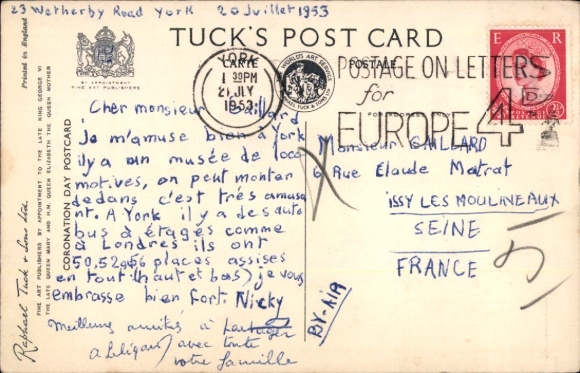 23 Wetherby Road York 20 Juillet 1953
TUCK'S POST CARD
CARTE POSTALE
BY APPOINTMENT
FINE ART PUBLISHERS
Printed in England
Raphael Tuck & Sons Ltd.
FINE ART PUBLISHERS BY APPOINTMENT TO THE LATE KING GEORGE VI
THE LATE QUEEN MARY AND H.M. QUEEN ELIZABETH THE QUEEN MOTHER
CORONATION DAY POSTCARD
YORK
1 30PM
21 JLY
1953
WORLD'S ART SERVICE
RAPHAEL TUCK & SONS LTD
POSTAGE ON LETTERS
for
EUROPE 4D
E R
2½D
Cher monsieur Gaillard
Je m'amuse bien à York
il y a un musée de loco
motives, on peut monter
dedans c'est trés amusa
nt. A York il y a des auto
bus à étages comme
à Londres ils ont
50, 52, 56 places assises
en tout (haut et bas) je vous
embrasse bien fort. Nicky
Meilleures amitiés à
avec toute
votre famille
Monsieur GAILLARD
6 Rue Claude Matrat
ISSY LES MOULINEAUX
SEINE
FRANCE
BY-AIR